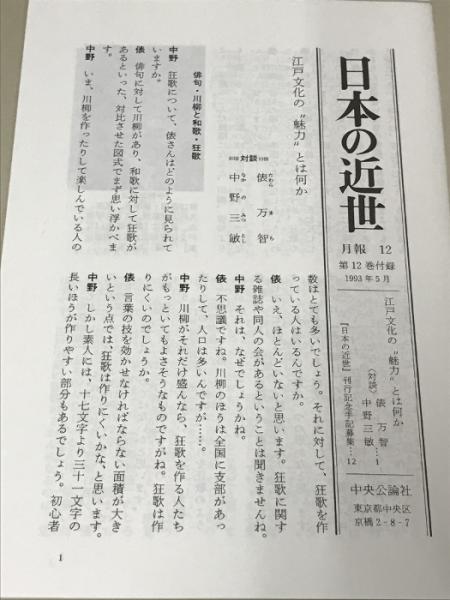 日本の近世
月報 12
第12巻付録
1993年5月
江戸文化の〝魅力〟とは何か
〈対談〉 俵 万智
中野三敏…1
『日本の近世』刊行記念手記募集…12
中央公論社
東京都中央区
京橋2-8-7
江戸文化の〝魅力〟とは何か
対談
俵 万智
たわら まち
中野三敏
なかの みつとし
俳句・川柳と和歌・狂歌
中野 狂歌について、俵さんはどのように見られて
いますか。
俵 俳句に対して川柳があり、和歌に対して狂歌が
あるといった、対比させた図式でまず思い浮かべま
す。
中野 いま、川柳を作ったりして楽しんでいる人の
数はとても多いでしょう。それに対して、狂歌を作
っている人はいるんですか。
俵 いえ、ほとんどいないと思います。狂歌に関す
る雑誌や同人の会があるということは聞きませんね。
中野 それは、なぜでしょうかね。
俵 不思議ですね。川柳のほうは全国に支部があっ
たりして、人口は多いんですが……。
中野 川柳がそれだけ盛んなら、狂歌を作る人たち
がもっといてもよさそうなものですがね。狂歌は作
りにくいのでしょうか。
俵 言葉の技を効かせなければならない面積が大き
いという点では、狂歌は作りにくいかな、と思います。
中野 しかし素人には、十七文字より三十一文字の
長いほうが作りやすい部分もあるでしょう。初心者
1